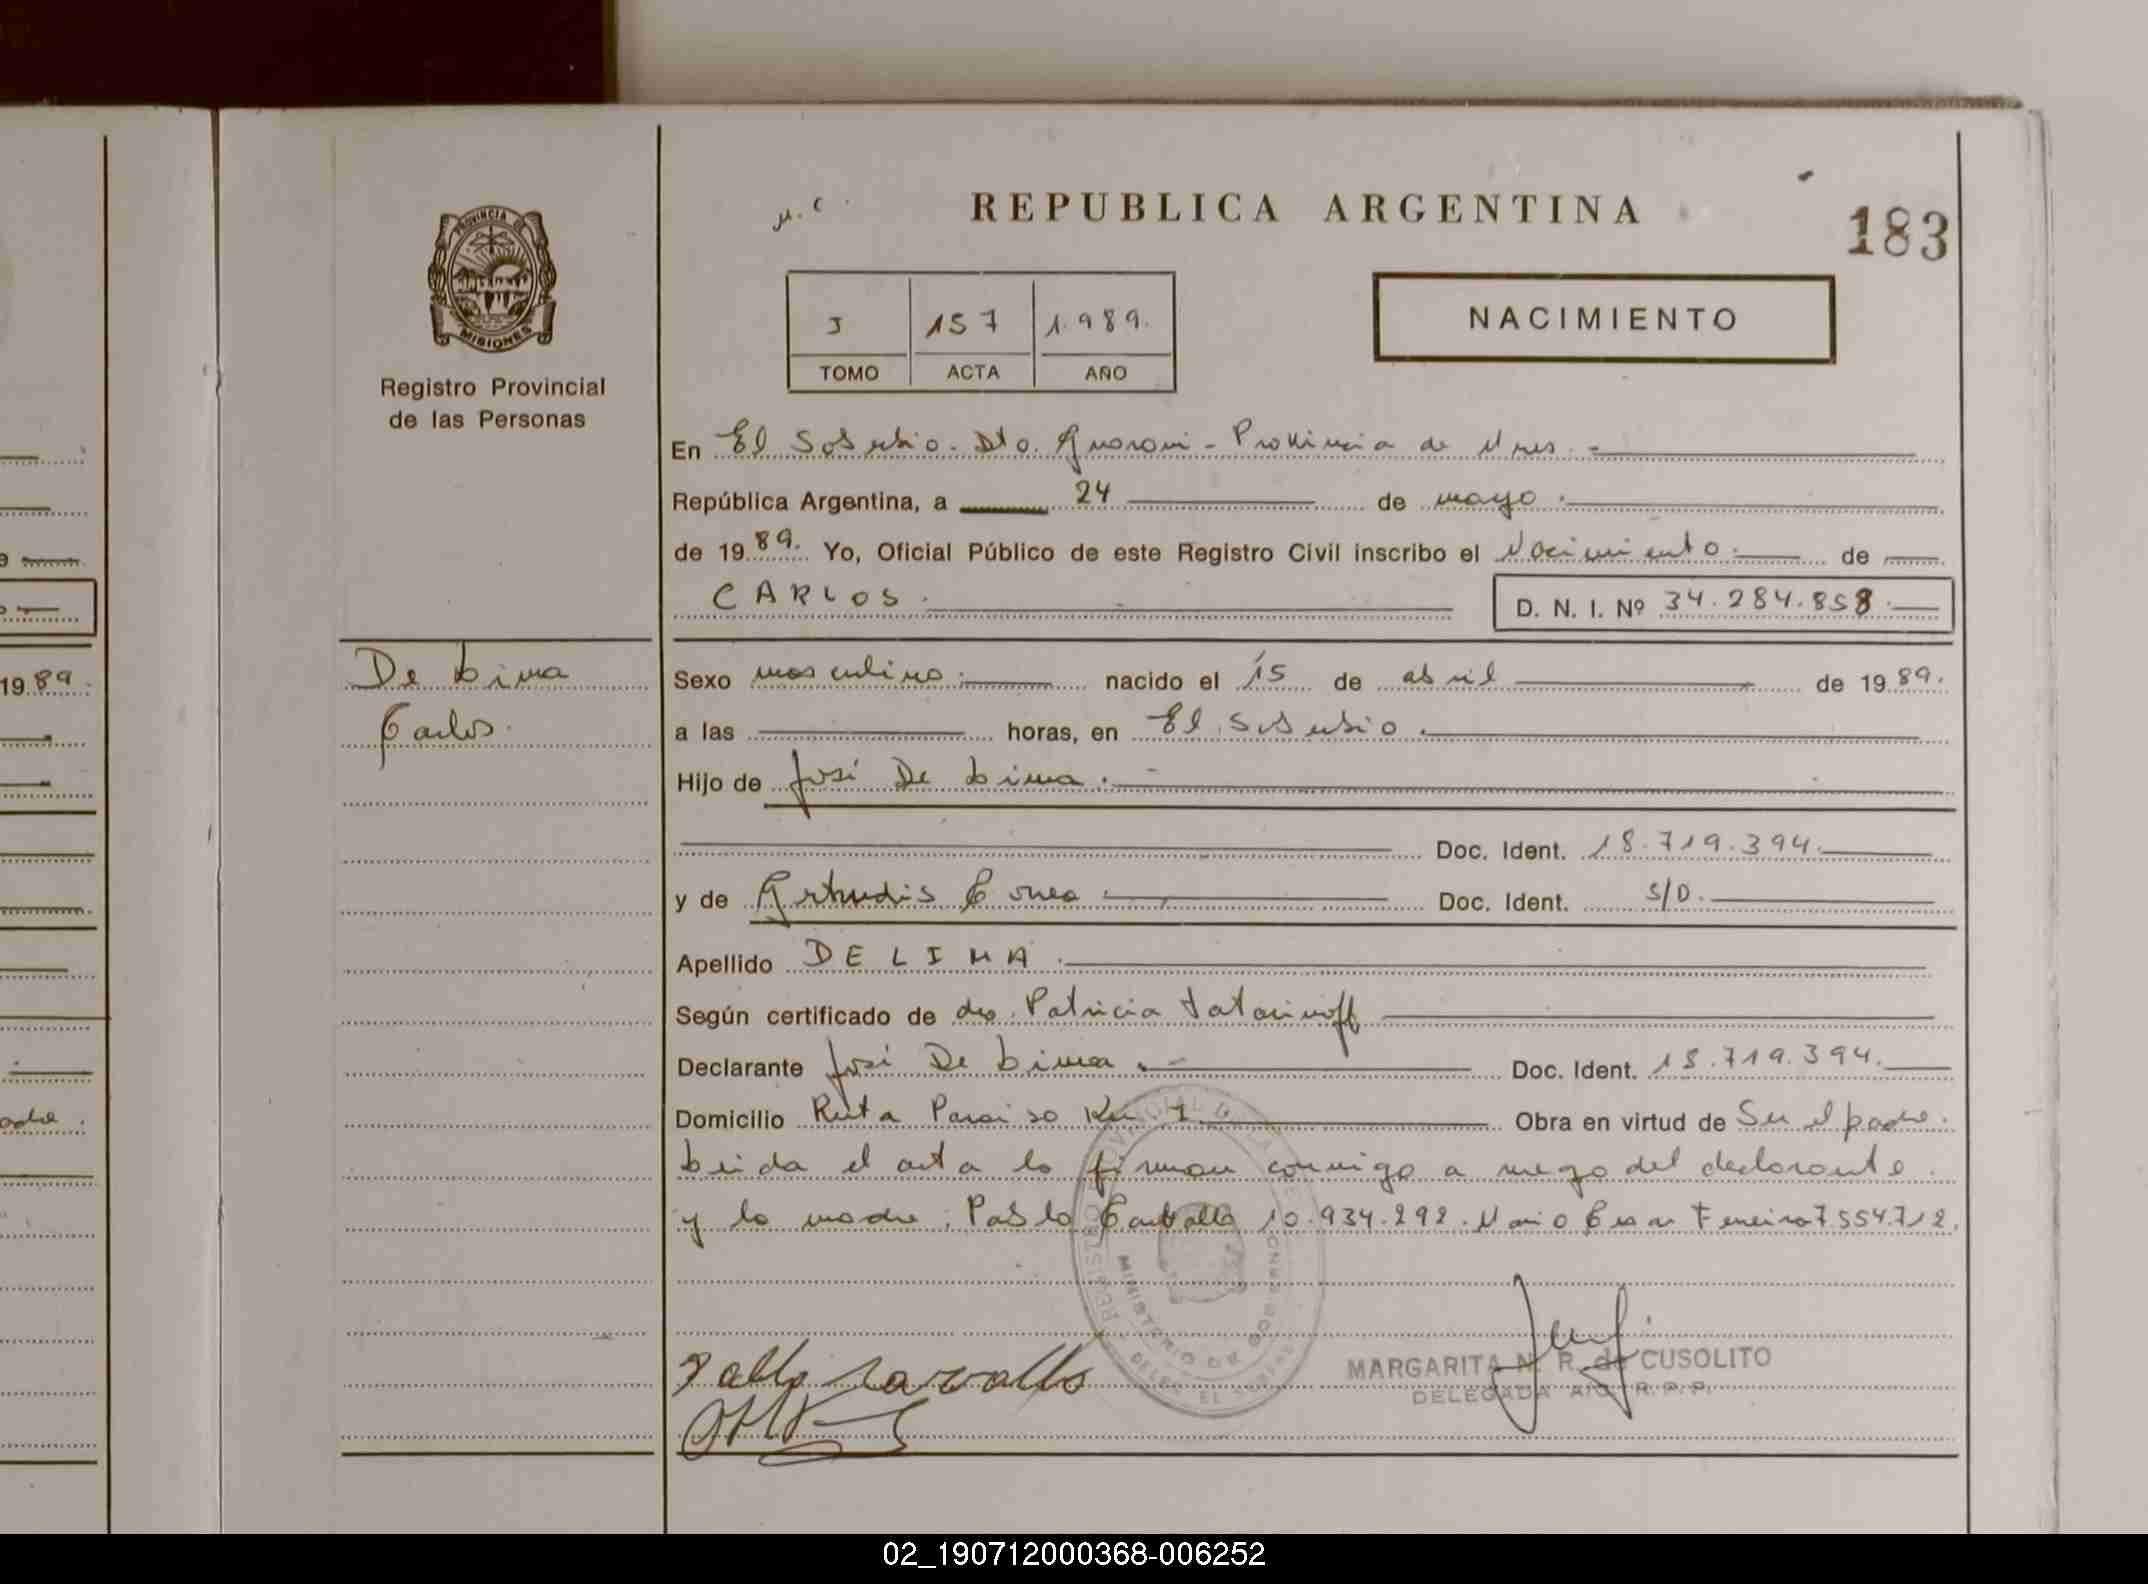 REPUBLICA ARGENTINA
183
PROVINCIA DE
MISIONES
Registro Provincial
de las Personas
J 157 1.989.
TOMO ACTA AÑO
NACIMIENTO
En El Soberbio. Dto. Guarani - Provincia de Mnes.
República Argentina, a 24 de mayo.
de 1989. Yo, Oficial Público de este Registro Civil inscribo el Nacimiento. de
CARLOS. D. N. I. Nº 34.284.858.
De Lima
Carlos.
Sexo masculino. nacido el 15 de abril de 1989.
a las horas, en El Soberbio.
Hijo de José De Lima.
Doc. Ident. 18.719.394.
y de Doc. Ident. S/D.
Apellido DE LIMA.
Según certificado de dra. Patricia Tatarinoff
Declarante José De Lima. Doc. Ident. 18.719.394.
Domicilio Ruta Paraiso Km 1 Obra en virtud de Ser el padre.
Leida el acta la firman conmigo a ruego del declarante
y la madre, Pablo Carballo 10.934.292. Mario Cesar Ferreira 7.554.712.
REGISTRO PROVINCIAL DE LAS
MINISTERIO DE GOBIERNO
Pablo Carvallo
MARGARITA N. R. de CUSOLITO
DELEGADA A/C. R.P.P.
1989.
02_190712000368-006252